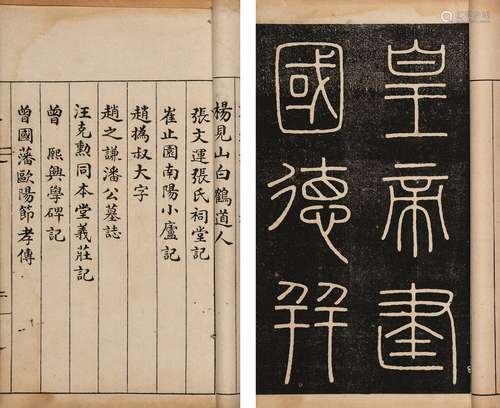 皇帝建
國德并
楊見山白鶴道人
張文運張氏祠堂記
崔止園南陽小廬記
趙撝叔大字
趙之謙潘公墓誌
汪克勳同本堂義莊記
曾熙興學碑記
曾國藩歐陽節孝傳